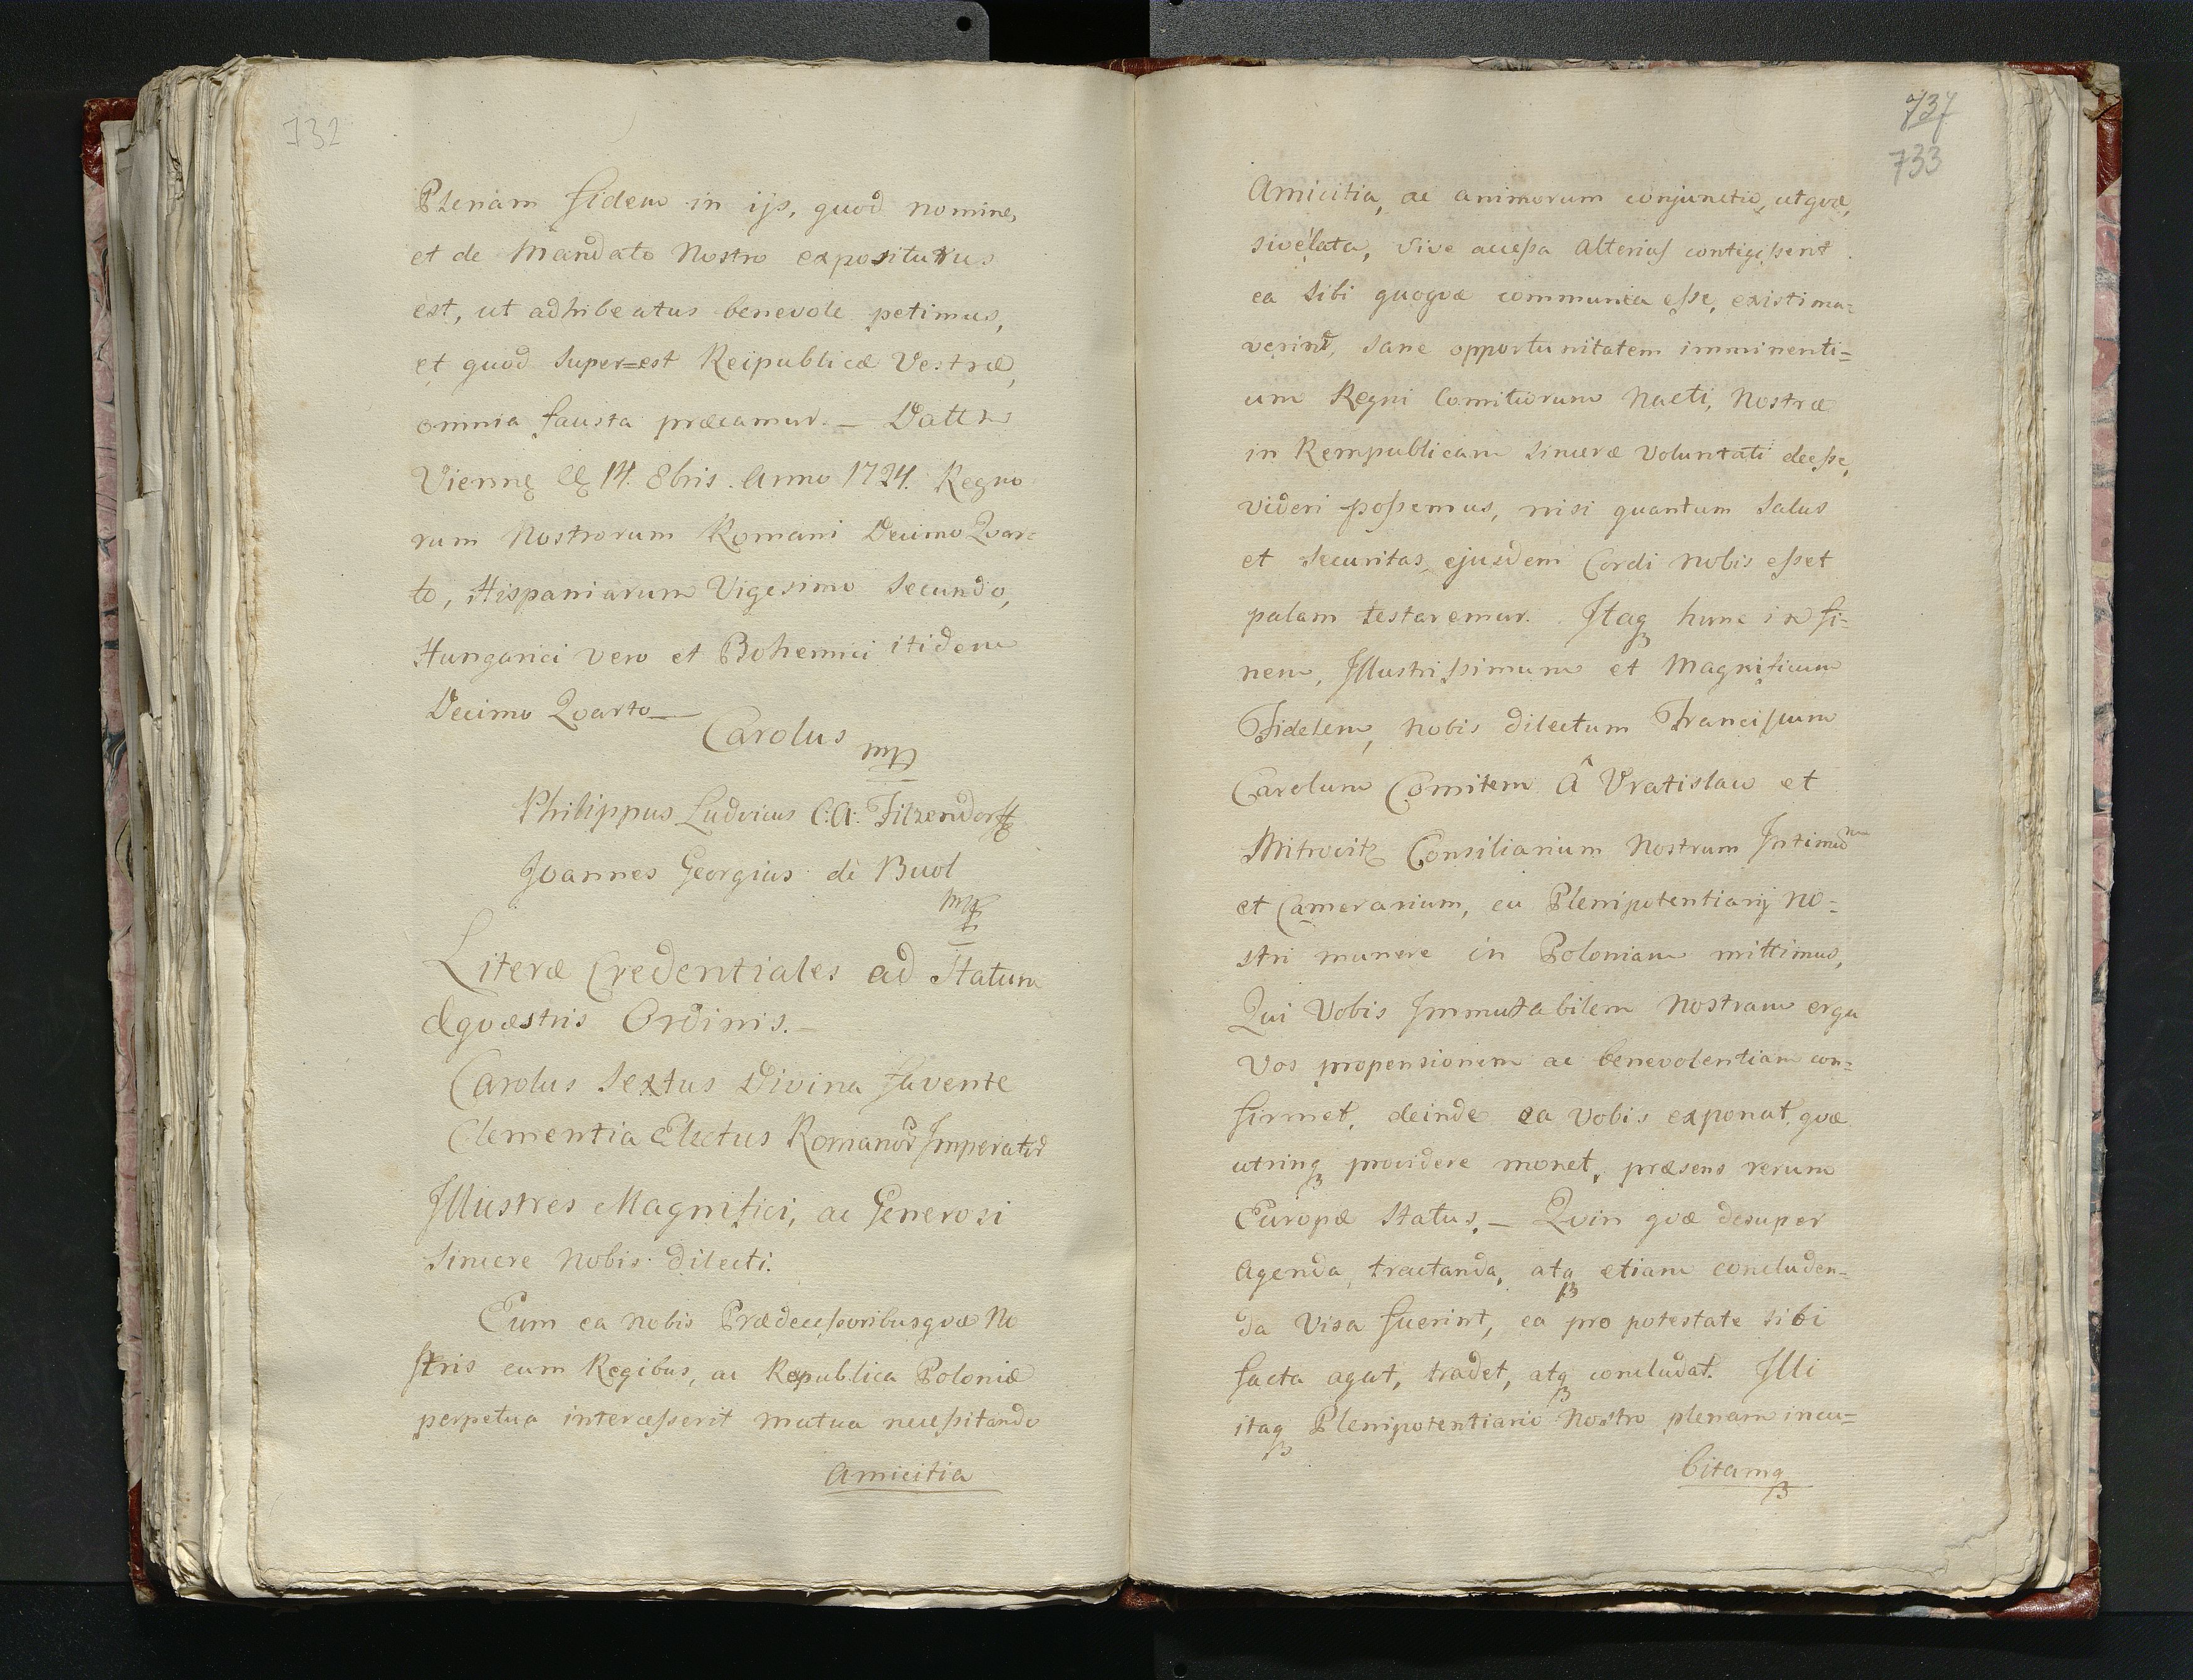 732
Plenam fidem in ijs, quod nomine,
et de Mandato Nostro expositurus
est, ut adhibeatus benevole petimus,
et quod super=est Reipublicæ Vestræ,
omnia fausta præcamur. — Datter
Viennę 14. 8bris. Anno 1724. Regno
rum Nostrorum Romani Decimo Qvar=
to, Hispaniarum Vigesimo Secundo,
Hungarici vero et Bohemici itidem
Decimo Qvarto —
Carolus mp
Philippus Ludvicus C:A: Filzendorff
Joannes Georgius de Buol
mp
Literæ Credentiales ad Statum
Æqvæstris Ordinis. —
Carolus Sextus Divina favente
Clementia Electus Romanor Imperator
Illustres Magnifici, ac Generosi
Sincere Nobis dilecti.
Cum ea nobis Prædecessoribusqvæ No
stris cum Regibus, ac Republica Poloniæ
perpetua intercæsserit mutua necessitando
Amicitia
737
733
Amicitia, ac animorum conjunctio, utqvæ,
sive lata, sive accessa Alterius contigisserit
ea sibi quoqvæ communia esse, existima=
verint, sane opportunitatem imminenti=
um Regni Comitiorum Nacti, Nostræ
in Rempublicam sinceræ Voluntati deesse,
videri possemus, nisi quantum Salus
et Securitas, ejusdem Cordi Nobis esset
palam testaremur. Itaqȝ hunc in fi=
nem, Illustrissimum et Magnificum
Fidelem, Nobis dilectum Franciscum
Carolum Comitem â Vratislaw et
Mitrovitz Consiliarium Nostrum Intimu͠m
et Camerarium, cu Plenipotentiarij No=
stri munere in Poloniam mittimus,
Qui Vobis Immutabilem Nostram erga
Vos propensionem ac benevolentiam con=
firmet, deinde ea Vobis exponat, qvæ
utrinqȝ providere monet, præsens rerum
Europæ Status. — Qvin qvæ desuper
Agenda, tractanda, atqȝ etiam concluden=
da Visa fuerint, ea pro potestate sibi
facta agat, tradet, atqȝ concludat. Illi
itaqȝ Plenipotentiario Nostro plenam incu=
bitamqȝ